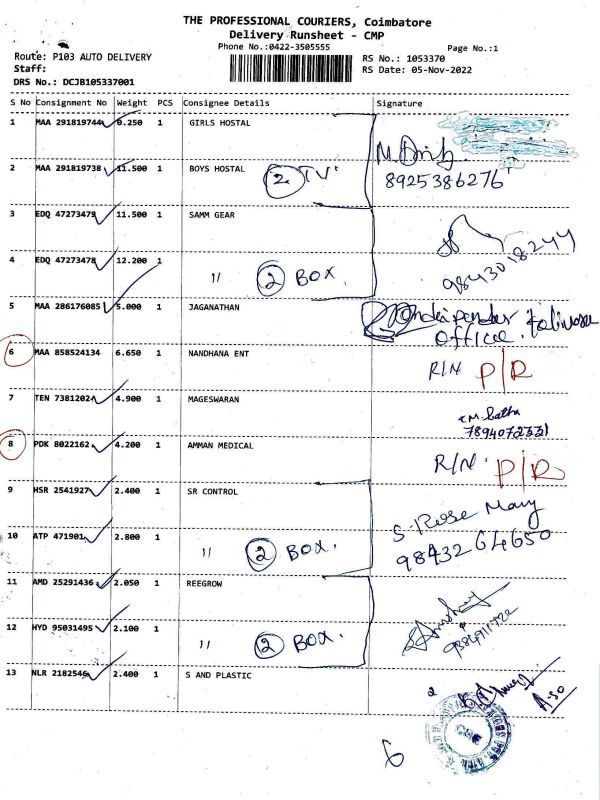 THE PROFESSIONAL COURIERS, Coimbatore
Delivery Runsheet - CMP
Phone No.:0422-3505555
Page No.:1
Route: P103 AUTO DELIVERY
RS No.: 1053370
Staff:
RS Date: 05-Nov-2022
DRS No.: DCJB105337001
S No Consignment No Weight PCS Consignee Details Signature
1 MAA 291819744 0.250 1 GIRLS HOSTAL
2 MAA 291819738 11.500 1 BOYS HOSTAL 2 TV
8925386276
3 EDQ 47273479 11.500 1 SAMM GEAR
4 EDQ 47273478 12.200 1 " 2 BOX
9843018244
5 MAA 286176085 5.000 1 JAGANATHAN
Office.
6 MAA 858524134 6.650 1 NANDHANA ENT R/N P/R
7 TEN 73812024 4.900 1 MAGESWARAN
7894072331
8 PDK 8022162 4.200 1 AMMAN MEDICAL R/N. P/R
9 HSR 2541927 2.400 1 SR CONTROL
S. Rose Mary
10 ATP 471901 2.800 1 " 2 BOX.
98432 64650
11 AMD 25291436 2.050 1 REEGROW
12 HYD 95031495 2.100 1 " 2 BOX.
13 NLR 2182546 2.400 1 S AND PLASTIC
2
6